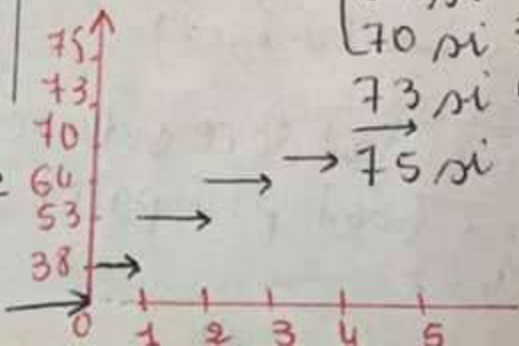 75
73
70
64
53
38
0 1 2 3 4 5
70 si
73 si
75 si